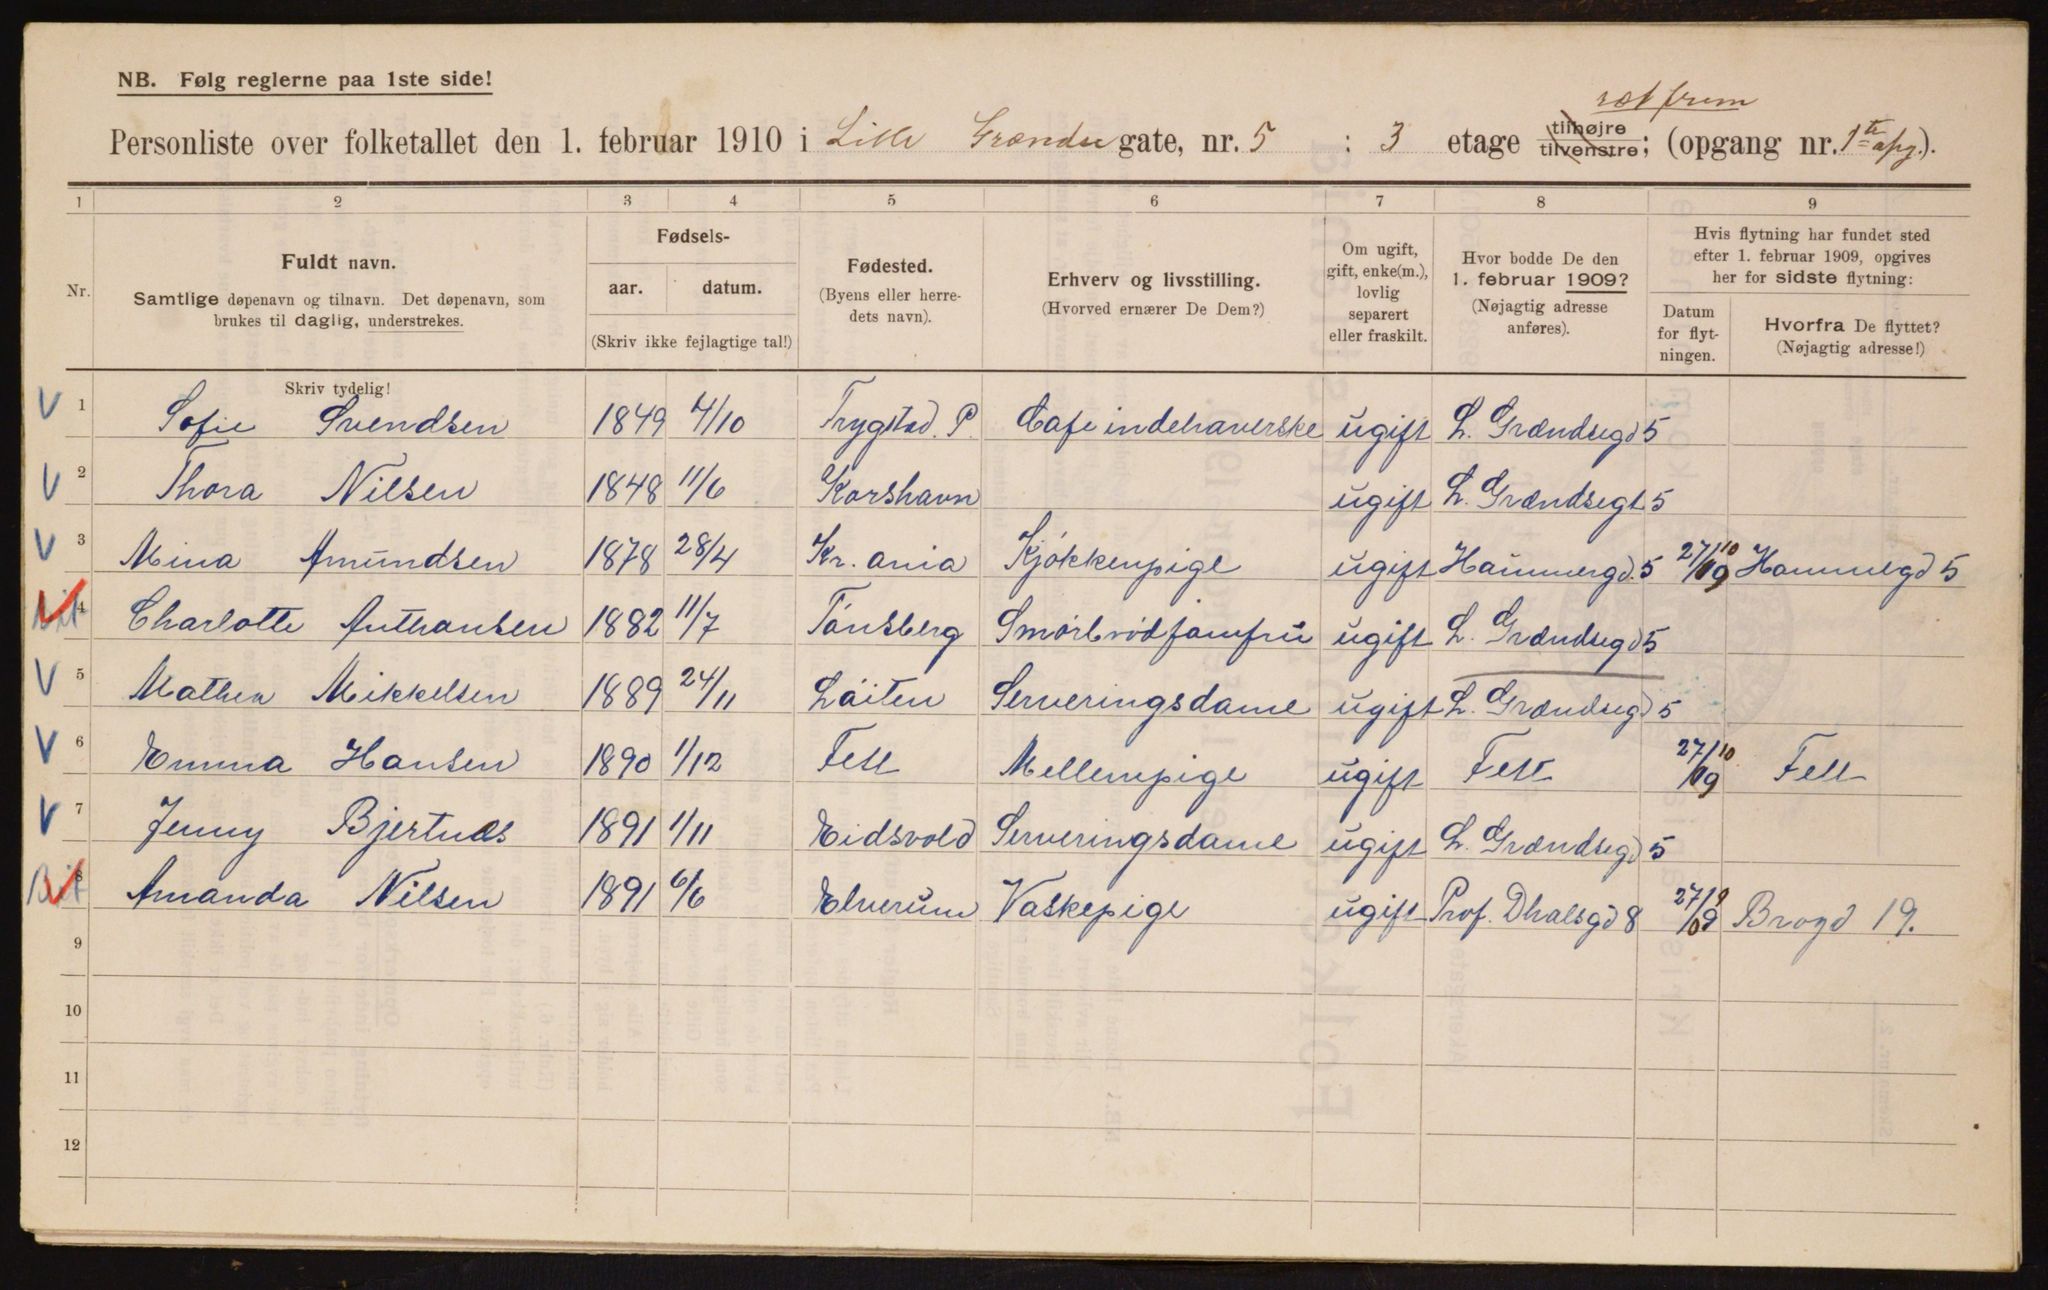 NB. Følg reglerne paa 1ste side!
ret frem
Personliste over folketallet den 1. februar 1910 i Lille Grændse gate, nr. 5 : 3 etage tilhøjre tilvenstre; (opgang nr. 1ste opg.).
1 2 3 4 5 6 7 8 9
Nr.
Fuldt navn.
Samtlige døpenavn og tilnavn. Det døpenavn, som
brukes til daglig, understrekes.
Skriv tydelig!
Fødsels-
aar. datum.
(Skriv ikke fejlagtige tal!)
Fødested.
(Byens eller herre-
dets navn).
Erhverv og livsstilling.
(Hvorved ernærer De Dem?)
Om ugift,
gift, enke(m.),
lovlig
separert
eller fraskilt.
Hvor bodde De den
1. februar 1909?
(Nøjagtig adresse
anføres).
Hvis flytning har fundet sted
efter 1. februar 1909, opgives
her for sidste flytning:
Datum
for flyt-
ningen.
Hvorfra De flyttet?
(Nøjagtig adresse!)
V 1 Sofie Svendsen 1849 4/10 Trygstad. P. Cafeindehaverske ugift L. Grændsegd 5
V 2 Thora Nilsen 1848 11/6 Korshavn ugift L. Grændsegt 5
V 3 Mina Amundsen 1878 28/4 Kr. ania Kjøkkenpige ugift Hammergd. 5 27/10 09 Hammegd 5
4 Charlotte Anthonsen 1882 11/7 Tønsberg Smørbrødjomfru ugift L. Grændsegd 5
V 5 Mathea Mikkelsen 1889 24/11 Løiten Serveringsdame ugift L. Grændsegd 5
V 6 Emma Hansen 1890 1/12 Fett Mellempige ugift Fett 27/10 09 Fett
V 7 Jenny Bjertnæs 1891 1/11 Eidsvold Serveringsdame ugift L. Grændsegd 5
8 Amanda Nilsen 1891 6/6 Elverum Vaskepige ugift Prof. Dhalsgd 8 27/9 09 Brogd 19.
9
10
11
12